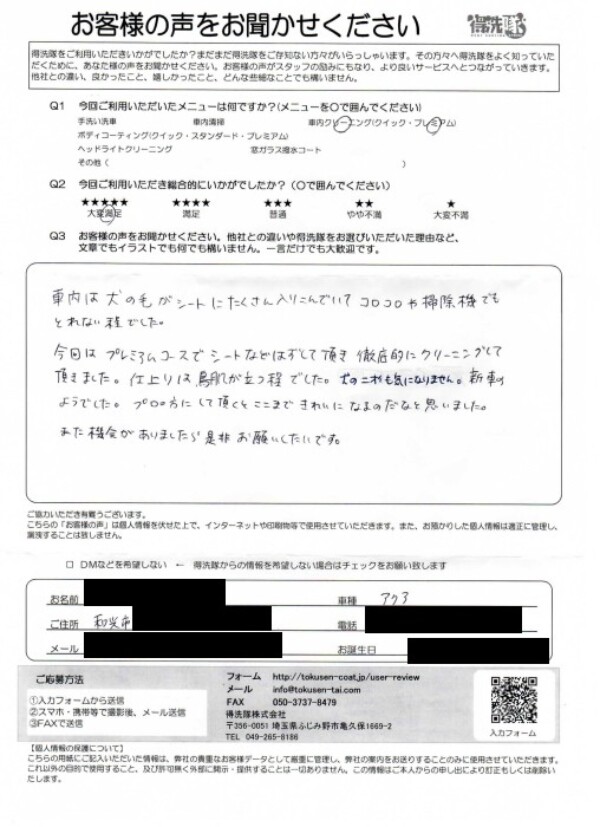 お客様の声をお聞かせください 得洗隊
得洗隊をご利用いただきいかがでしたか？まだまだ得洗隊をご存知ない方々がいらっしゃいます。その方々へ得洗隊をよく知っていた
だくために、あなた様の声をお聞かせください。お客様の声がスタッフの励みにもなり、より良いサービスへとつながっていきます。
他社との違い、良かったこと、嬉しかったこと、どんな些細なことでも構いません。
Q1 今回ご利用いただいたメニューは何ですか？(メニューを〇で囲んでください)
手洗い洗車 車内清掃 車内クリーニング(クイック・プレミアム)
ボディコーティング(クイック・スタンダード・プレミアム)
ヘッドライトクリーニング 窓ガラス撥水コート
その他 ( )
Q2 今回ご利用いただき総合的にいかがでしたか？ (〇で囲んでください)
★★★★★ ★★★★ ★★★ ★★ ★
大変満足 満足 普通 やや不満 大変不満
Q3 お客様の声をお聞かせください。他社との違いや得洗隊をお選びいただいた理由など、
文章でもイラストでも何でも構いません。一言だけでも大歓迎です。
車内は犬の毛がシートにたくさん入りこんでいて コロコロや掃除機でも
とれない程でした。
今回は プレミアムコースで シートなどはずして頂き 徹底的にクリーニングして
頂きました。仕上りは鳥肌が立つ程でした。犬のニオイも気になりません。新車の
ようでした。プロの方にして頂くとここまで きれいに なるものだなと思いました。
また機会がありましたら是非お願いしたいです。
ご協力いただき有難うございます。
こちらの「お客様の声」は個人情報を伏せた上で、インターネットや印刷物等で使用させていただきます。また、お預かりした個人情報は適正に管理し、
漏洩することは致しません。
□ DMなどを希望しない ← 得洗隊からの情報を希望しない場合はチェックをお願い致します
お名前 車種 アクア
ご住所 和光市 電話
メール お誕生日
ご応募方法
①入力フォームから送信
②スマホ・携帯等で撮影後、メール送信
③FAXで送信
フォーム http://tokusen-coat.jp/user-review
メール info@tokusen-tai.com
FAX 050-3737-8479
得洗隊株式会社
〒356-0051 埼玉県ふじみ野市亀久保1669-2
TEL 049-265-8186
入力フォーム
【個人情報の保護について】
こちらの用紙にご記入いただいた情報は、弊社の貴重なお客様データとして厳重に管理し、弊社の案内をお送りすることのみに使用させていただきます。
これ以外の目的で使用すること、及び許可無く外部に開示・提供することは一切ありません。この情報はご本人からの申し出により訂正もしくは削除い
たします。